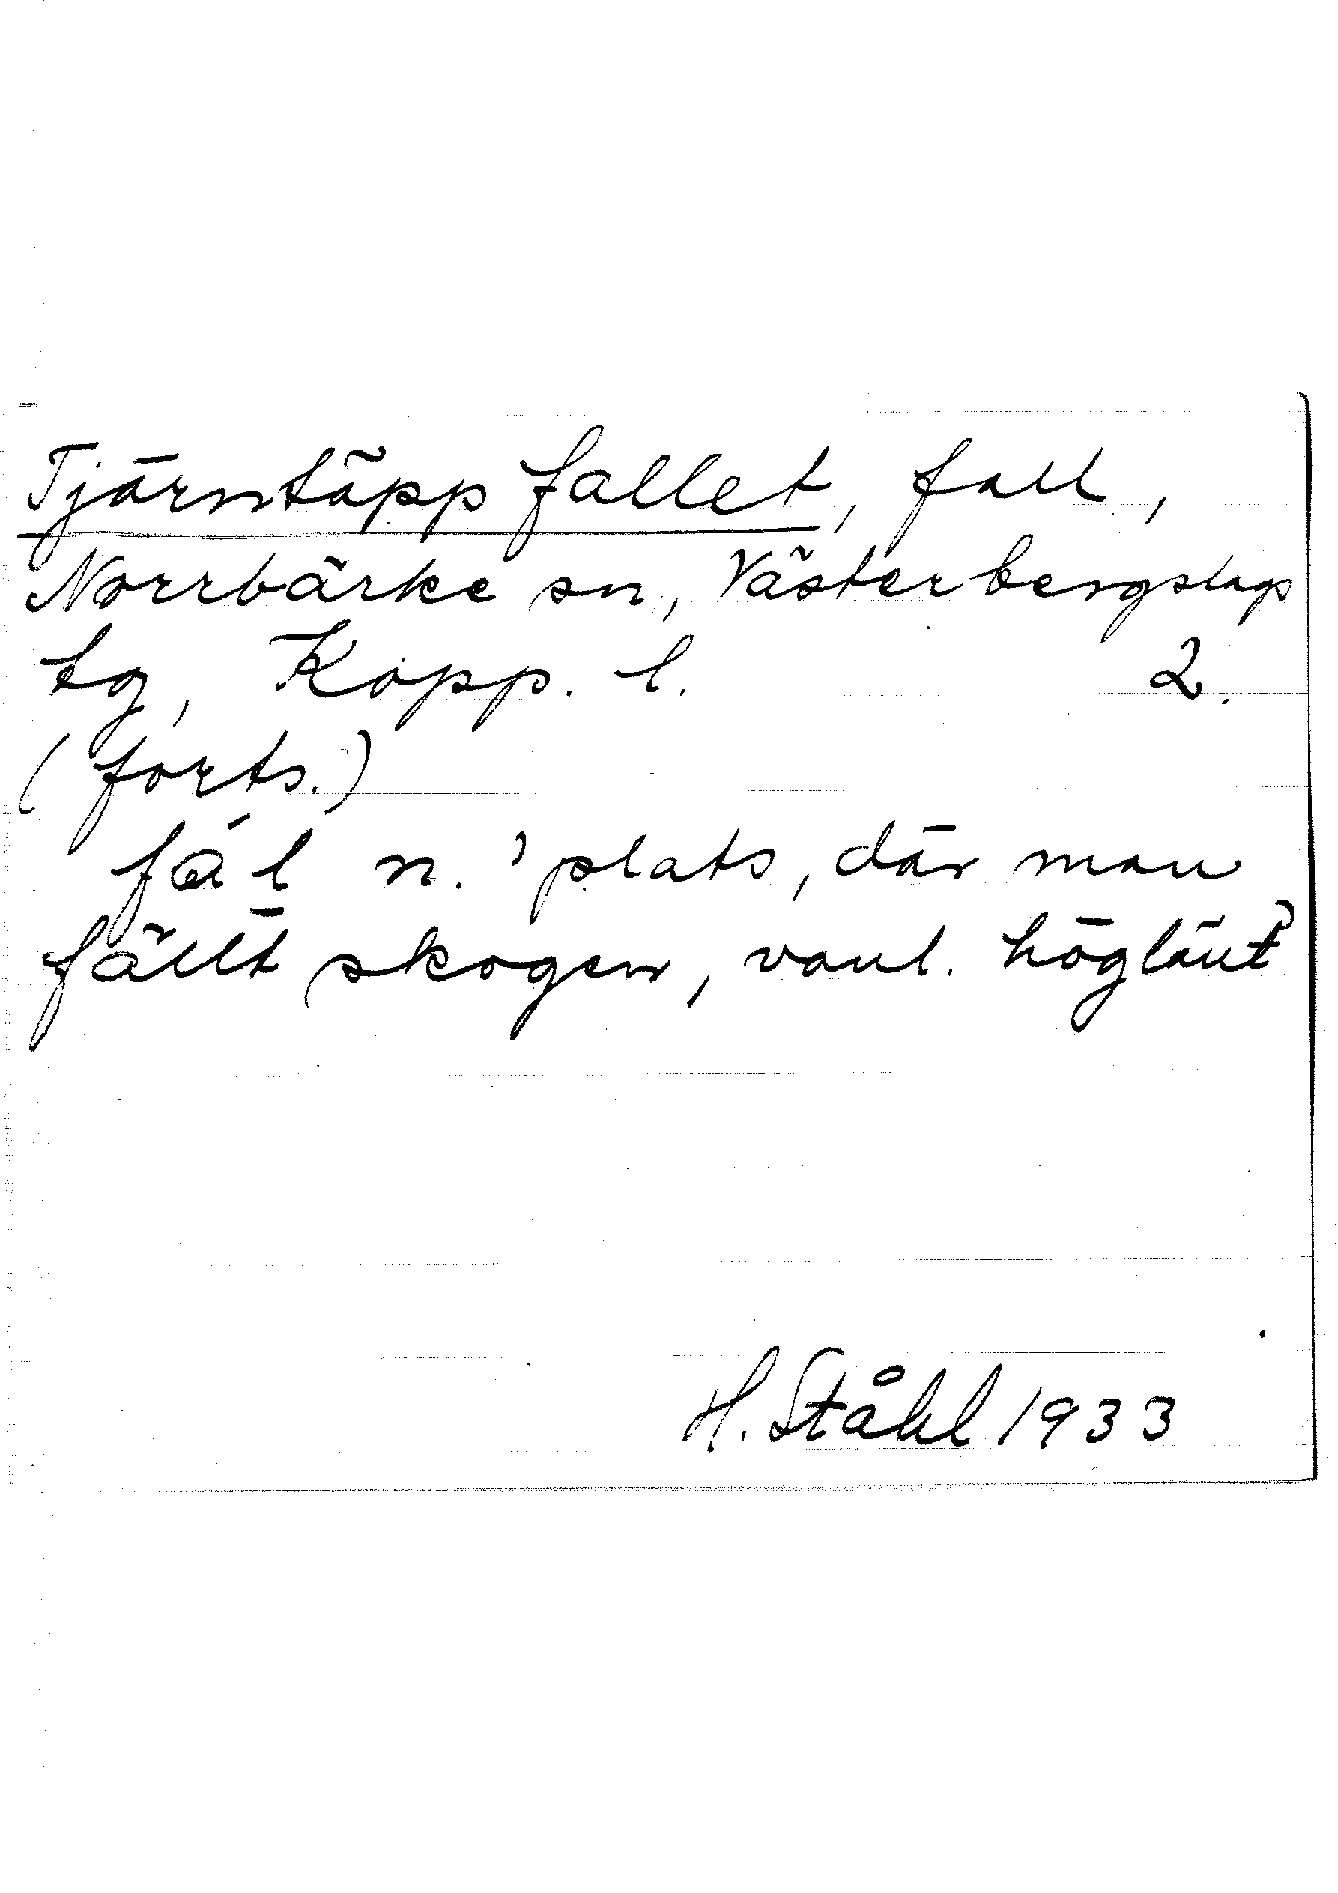 Tjärntäppfallet, fall,
Norrbärke sn, Västerbergslags
tg, Kopp. l. 2.
(forts.)
fál n. 'plats, där man
fällt skogen, vanl. höglänt'
H. Ståhl 1933